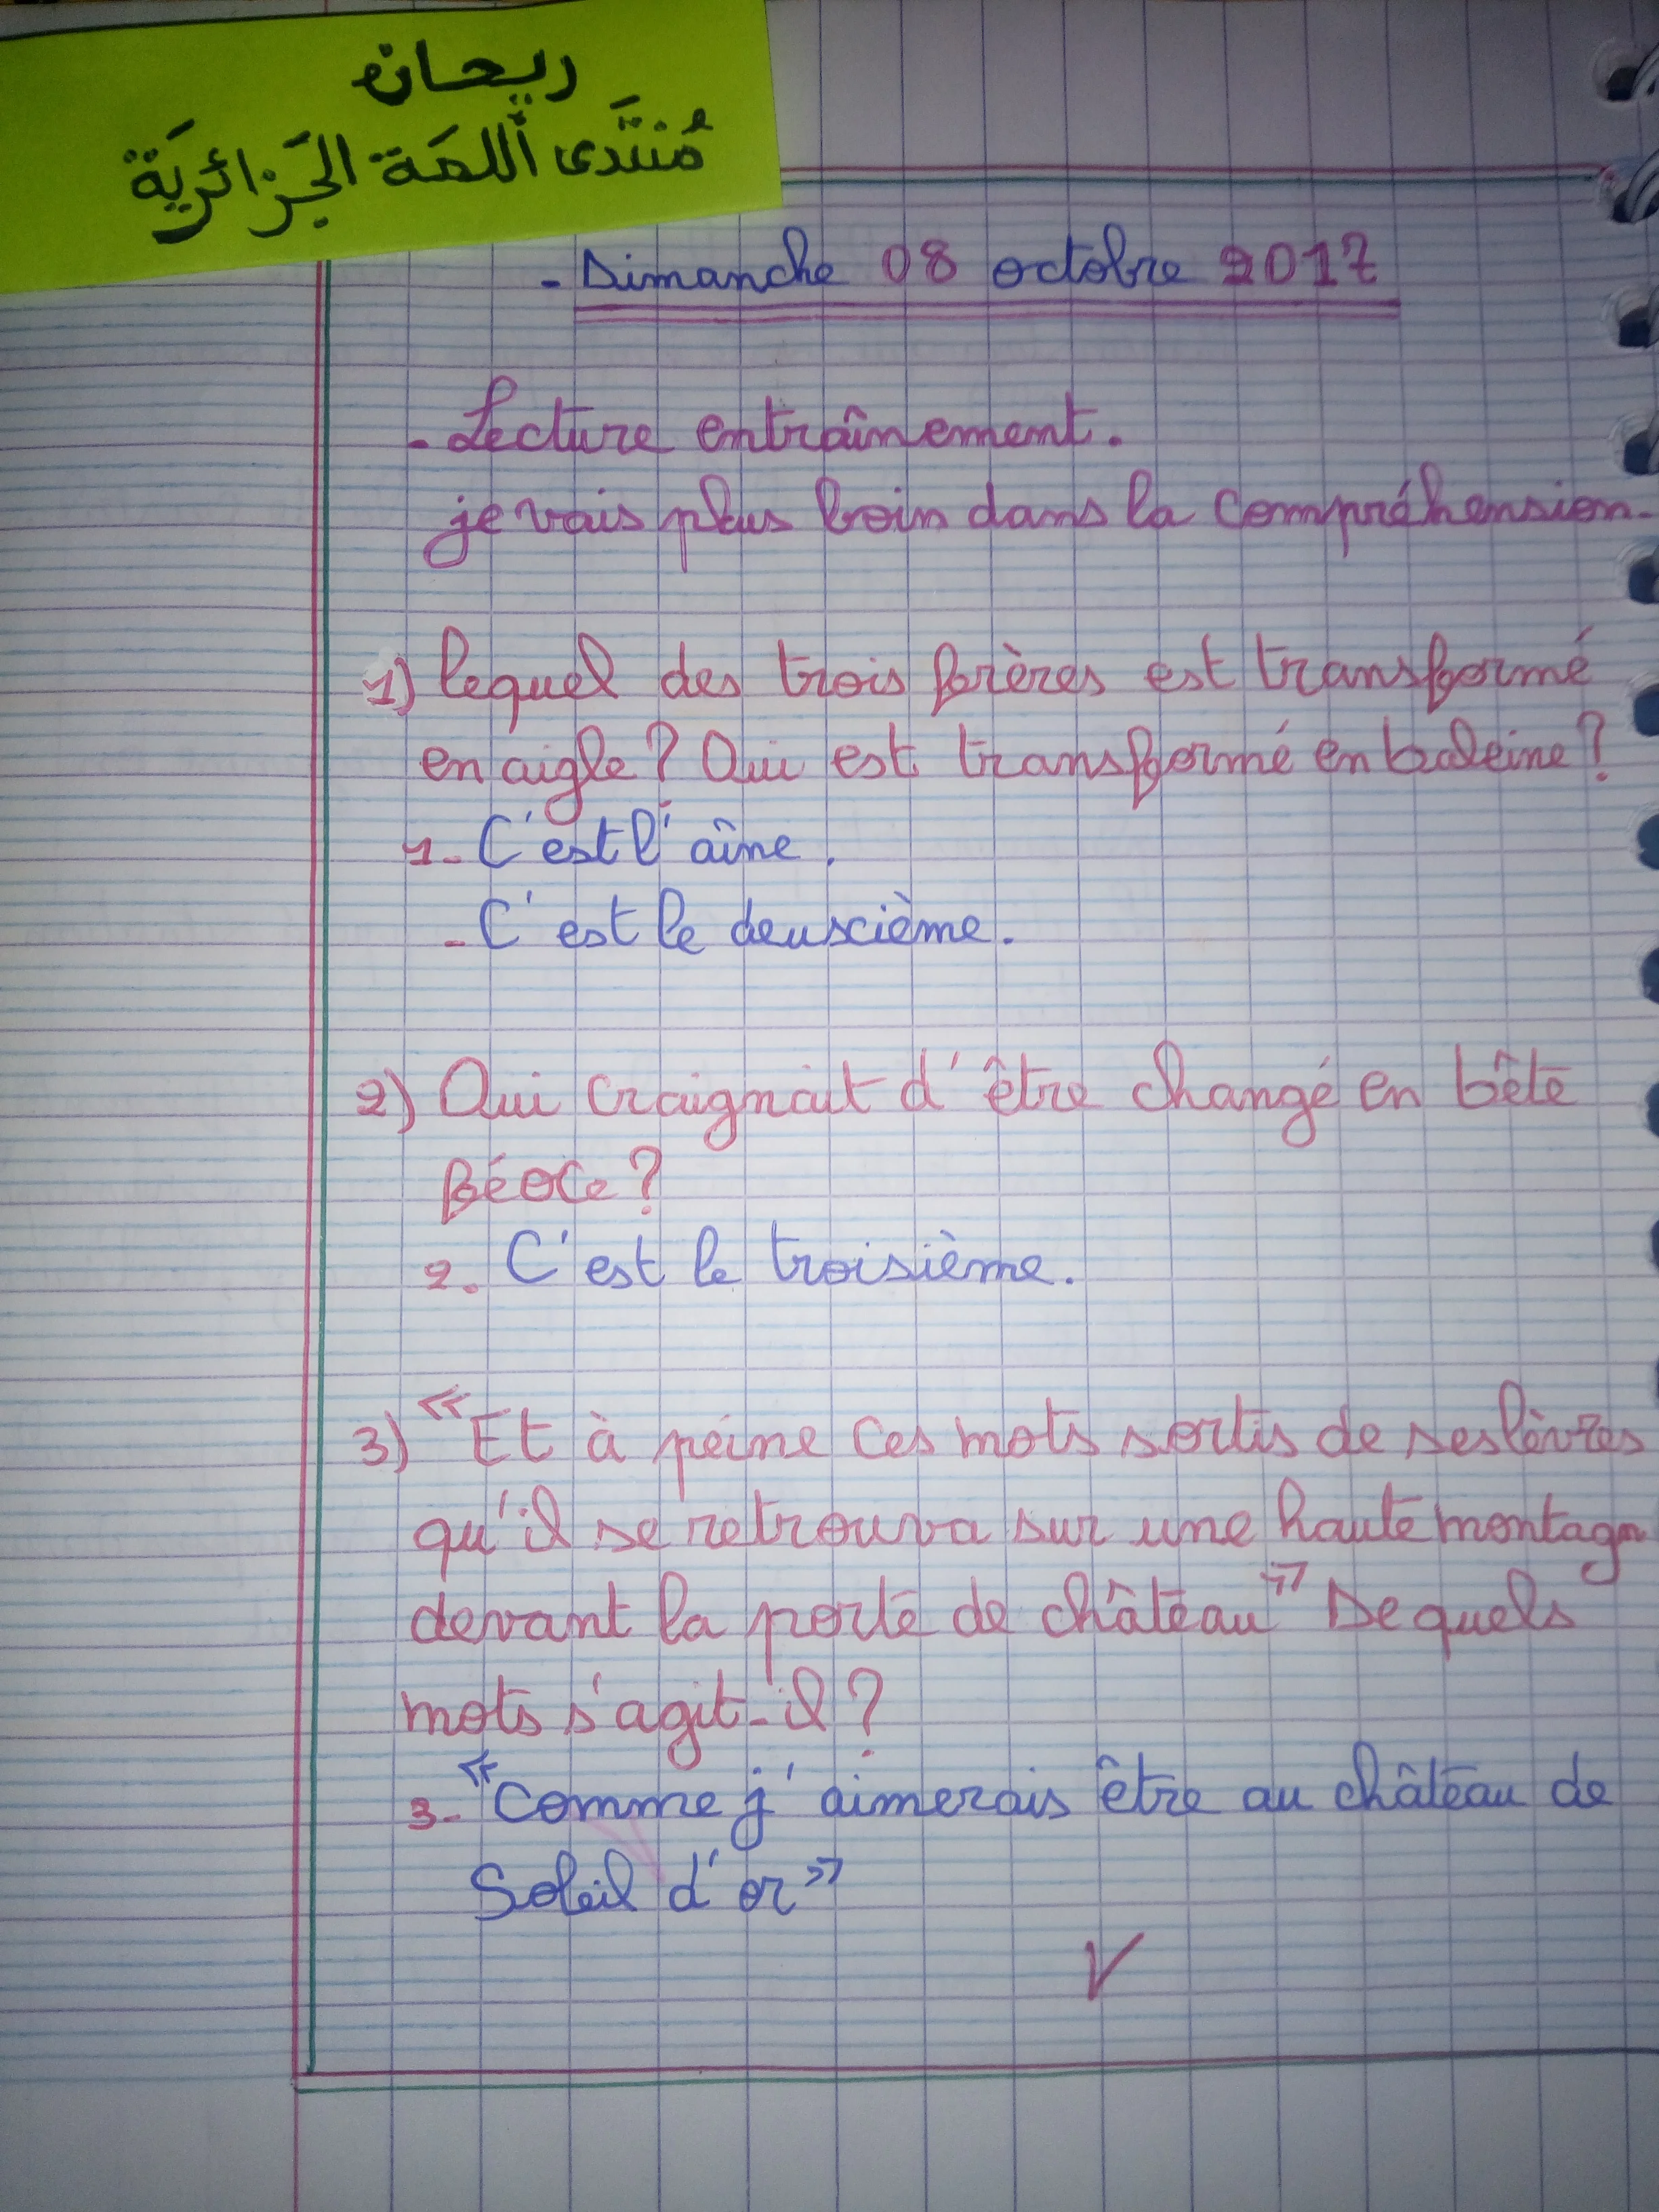 ريحان
مُنتَدى اللمَة الجَزائريَة
- Dimanche 08 octobre 2017
- Lecture entraînement.
je vais plus loin dans la compréhension.
1) lequel des trois frères est transformé
en aigle? Qui est transformé en baleine?
1- C'est l'aîne.
- C'est le deuxcième.
2) Qui craignait d'être changé en bête
Béoce?
2. C'est le troisième.
3) «Et à peine ces mots sortis de ses lèvres
qu'il se retrouva sur une haute montagn
devant la porte de château» De quels
mots s'agit-il?
3- «Comme j'aimerais être au château de
Soleil d'or»